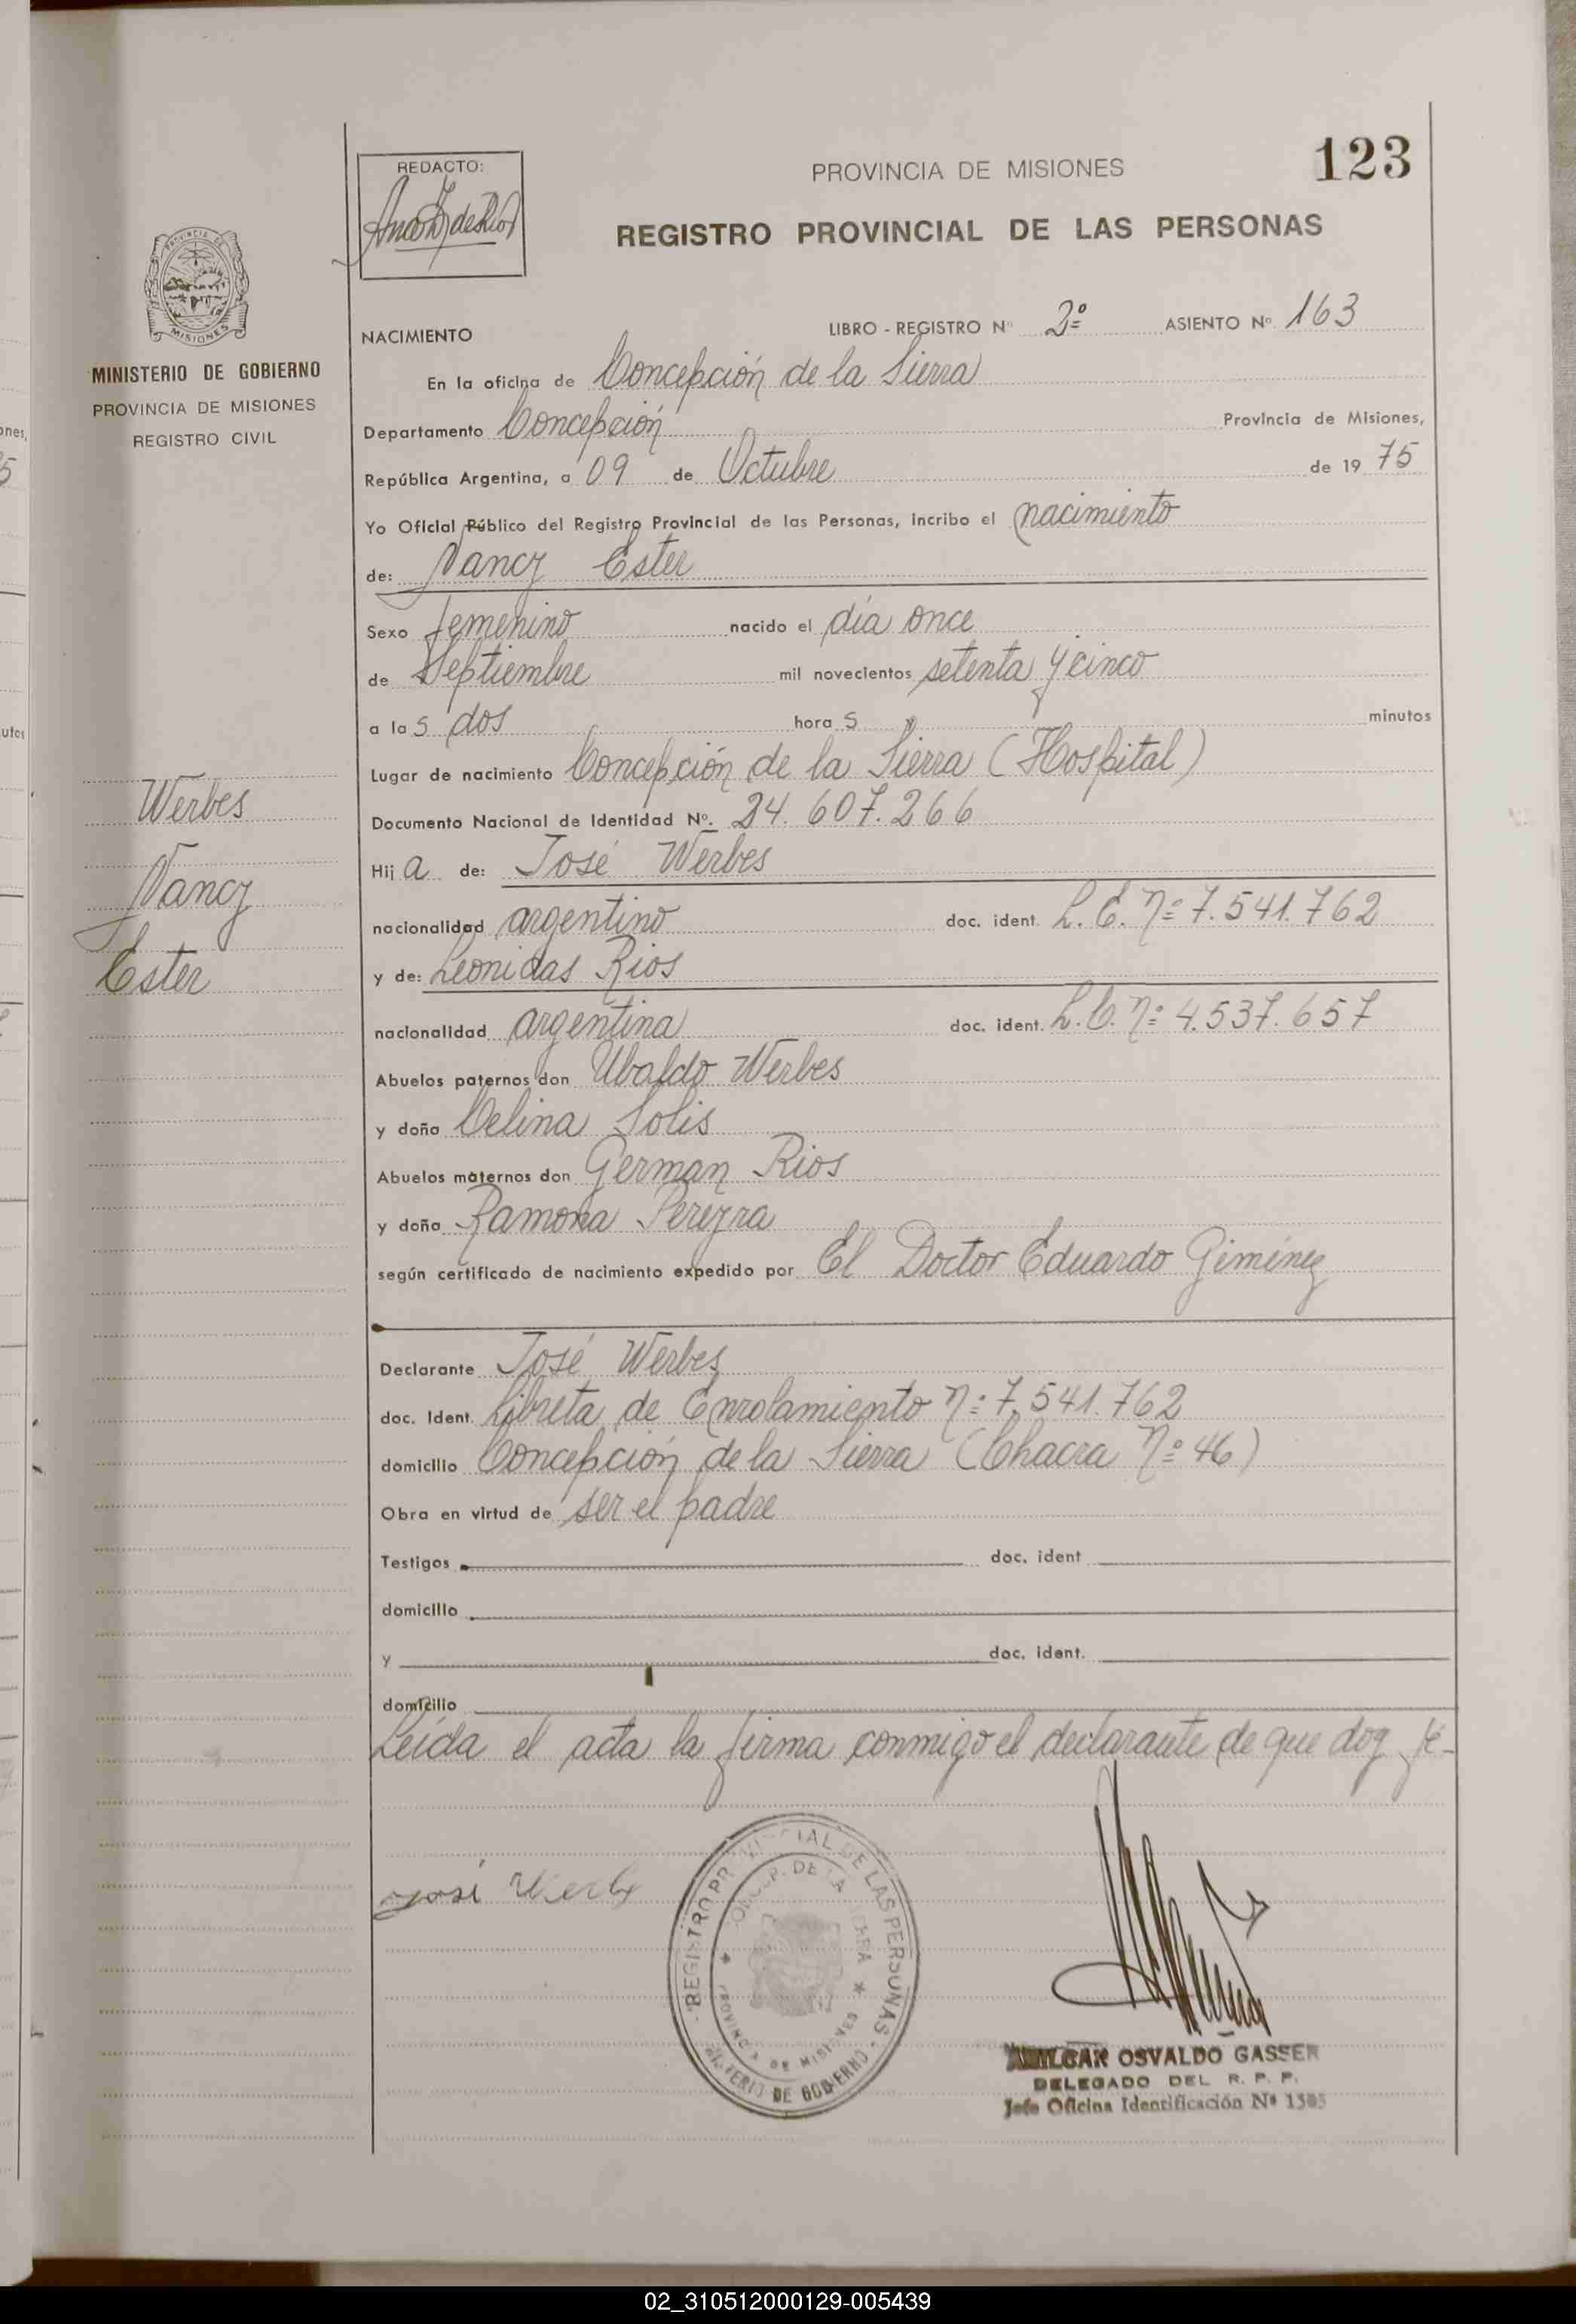 123
REDACTO:
PROVINCIA DE MISIONES
REGISTRO PROVINCIAL DE LAS PERSONAS
MISIONES
MINISTERIO DE GOBIERNO
PROVINCIA DE MISIONES
REGISTRO CIVIL
NACIMIENTO LIBRO - REGISTRO Nº 2º ASIENTO Nº 163
En la oficina de Concepción de la Sierra
Departamento Concepción Provincia de Misiones,
República Argentina, a 09 de Octubre de 19 75
Yo Oficial Público del Registro Provincial de las Personas, incribo el nacimiento
de: Nancy Ester
Sexo femenino nacido el día once
de Septiembre mil novecientos setenta y cinco
a las dos horas minutos
Lugar de nacimiento Concepción de la Sierra (Hospital)
Werbes
Nancy
Ester
Documento Nacional de Identidad Nº. 24.607.266
Hij a de: José Werbes
nacionalidad argentino doc. ident. L.E. nº 7.541.762
y de: Leonidas Rios
nacionalidad argentina doc. ident. L.C. nº 4.537.657
Abuelos paternos don Ubaldo Werbes
y doña Celina Solis
Abuelos maternos don German Rios
y doña Ramona Pereyra
según certificado de nacimiento expedido por El Doctor Eduardo Giménez
Declarante José Werbes
doc. Ident. Libreta de Enrolamiento nº 7.541.762
domicilio Concepción de la Sierra (Chacra nº 46)
Obra en virtud de ser el padre
Testigos doc. ident
domicilio
y doc. ident.
domicilio
Leída el acta la firma conmigo el declarante de que doy fé-
José Werbes
REGISTRO PROVINCIAL DE LAS PERSONAS
CONCEP. DE LA SIERRA
PROVINCIA DE MISIONES
MINISTERIO DE GOBIERNO
AMILCAR OSVALDO GASSER
DELEGADO DEL R. P. P.
Jefe Oficina Identificación Nº 1505
02_310512000129-005439